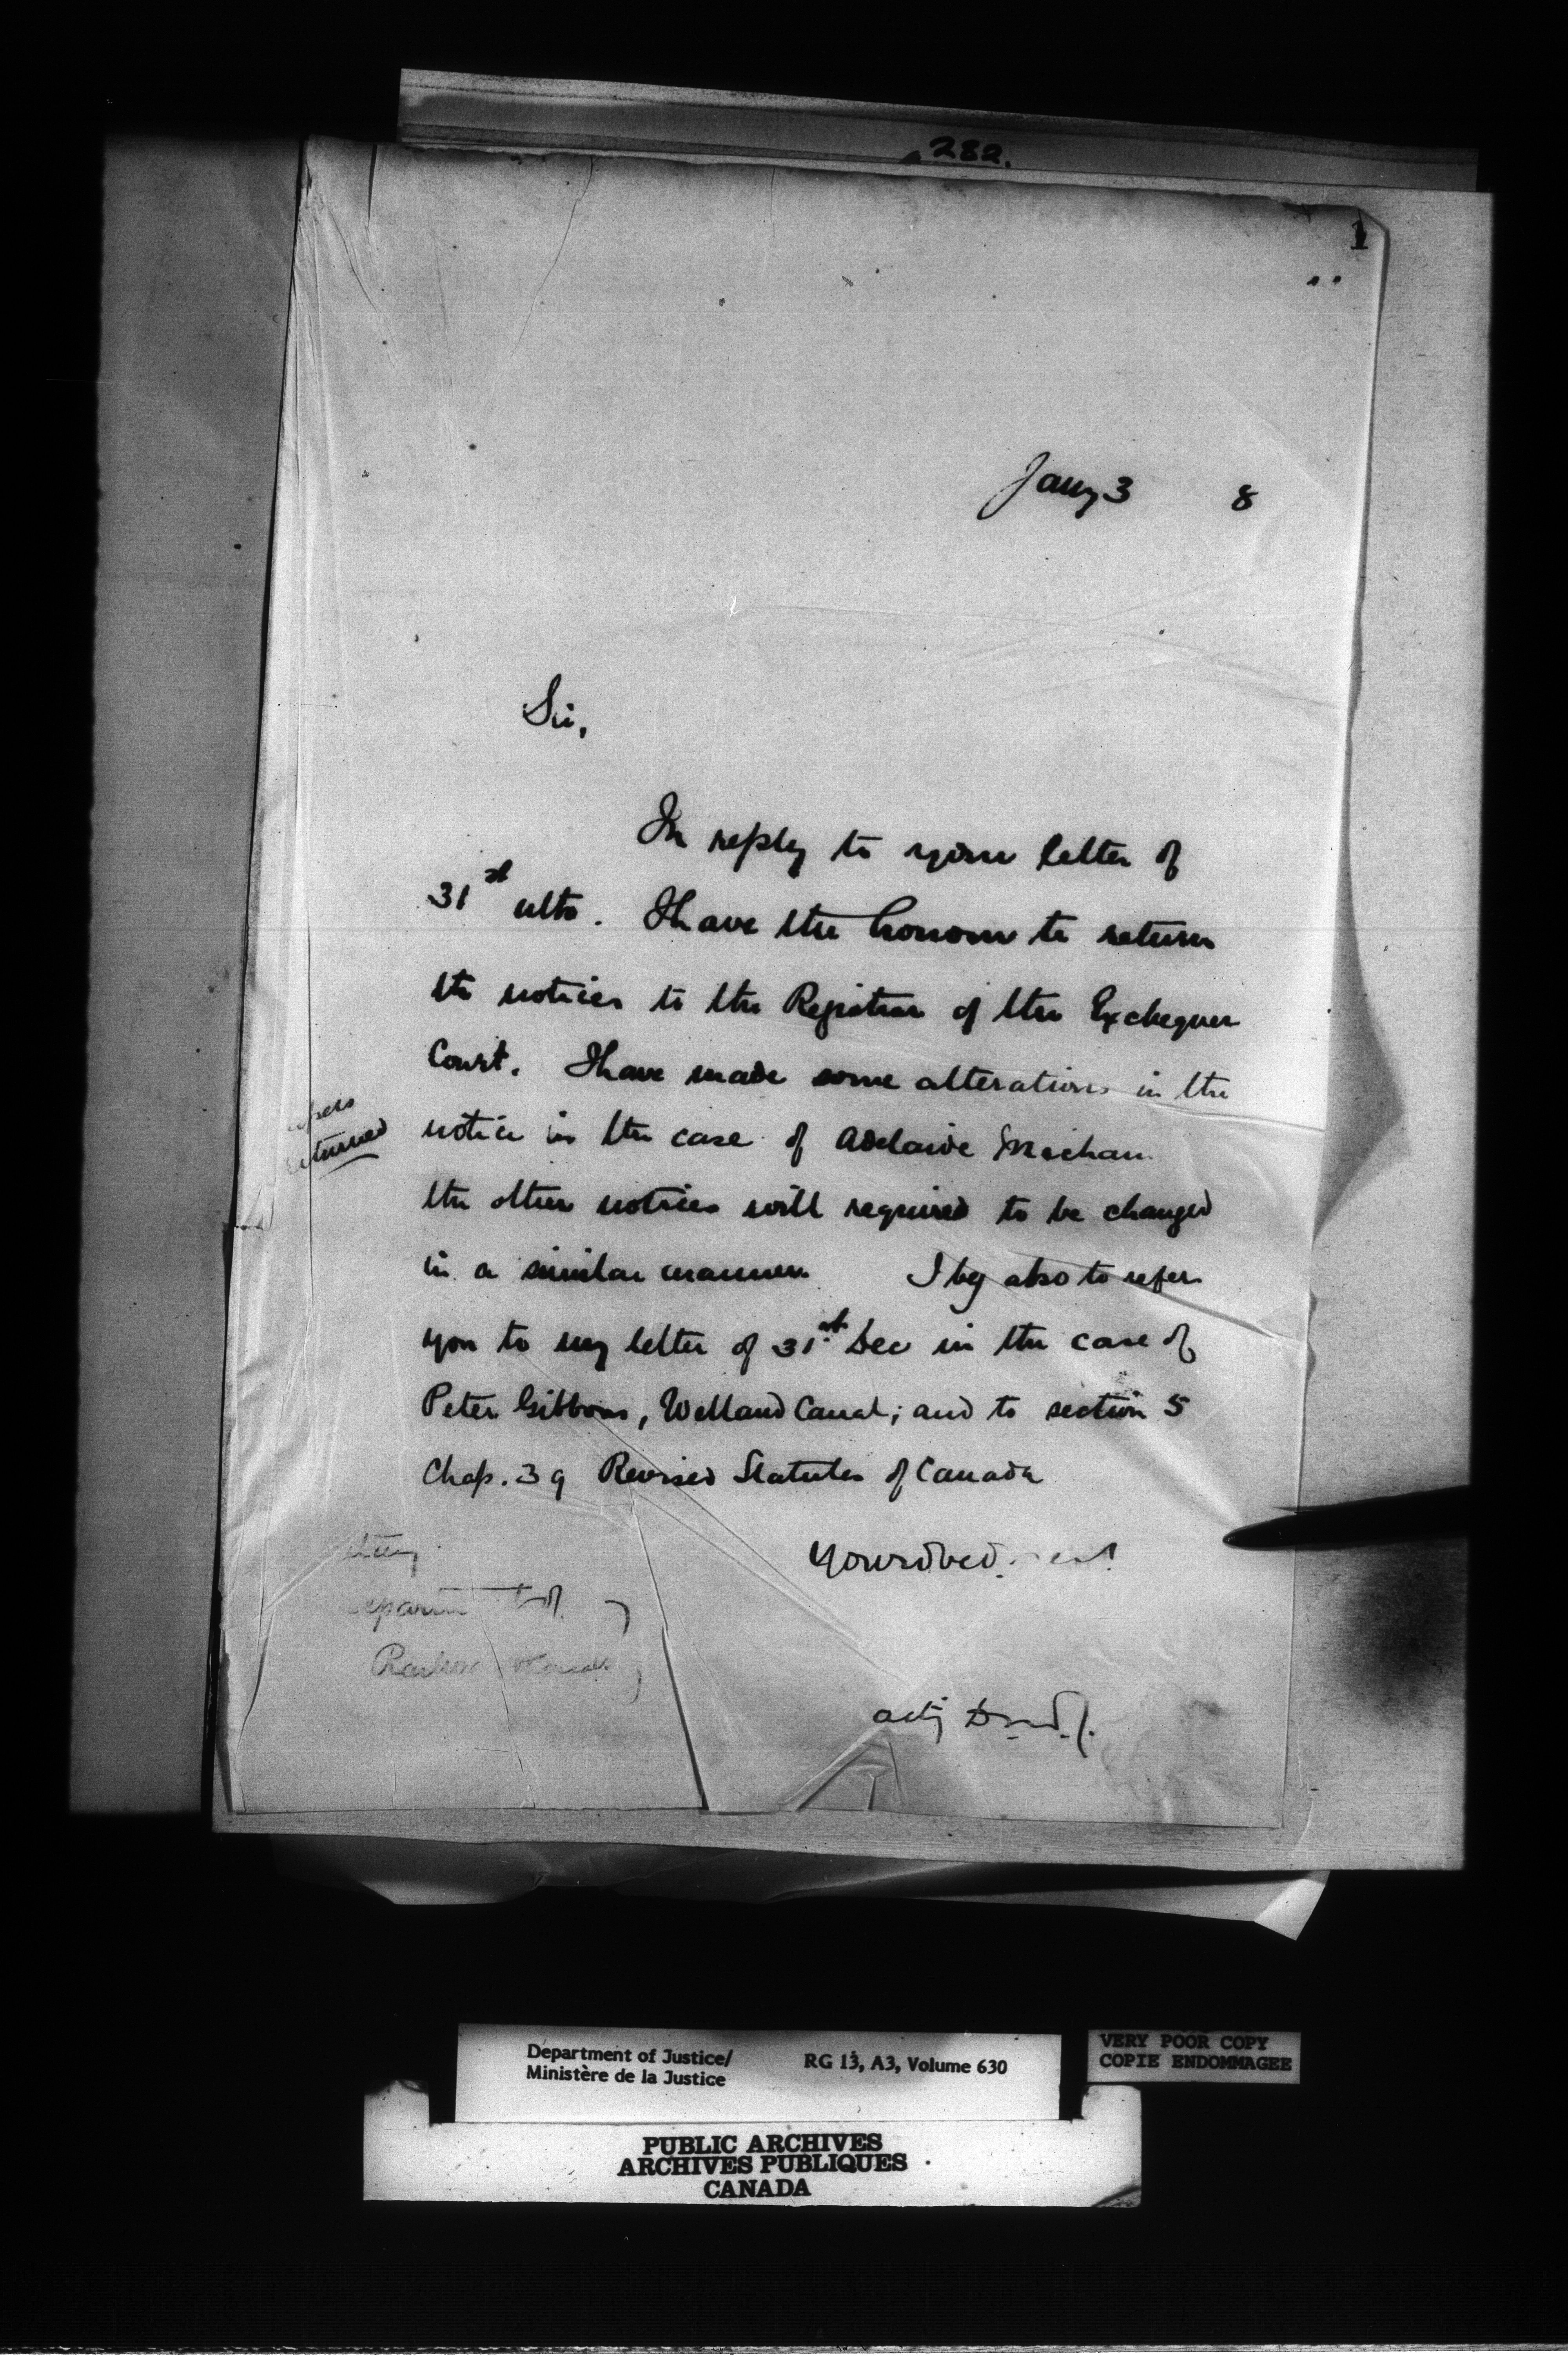 282.
1
Jany 3 8
Sir,
In reply to your letter of
31st ulto. I have the honour to return
the notices to the Registrar of the Exchequer
Court. I have made some alterations in the
notice in the case of Adelaide
returned
the other notices will required to be changed
in a similar manner I beg also to refer
you to my letter of 31st Dec in the case of
Peter Gibbons, Welland Canal; and to section 5
Chap. 39 Revised Statutes of Canada
Your obed.
actg D.M.J.
Department of Justice/ RG 13, A3, Volume 630
Ministère de la Justice
VERY POOR COPY
COPIE ENDOMMAGEE
PUBLIC ARCHIVES
ARCHIVES PUBLIQUES
CANADA